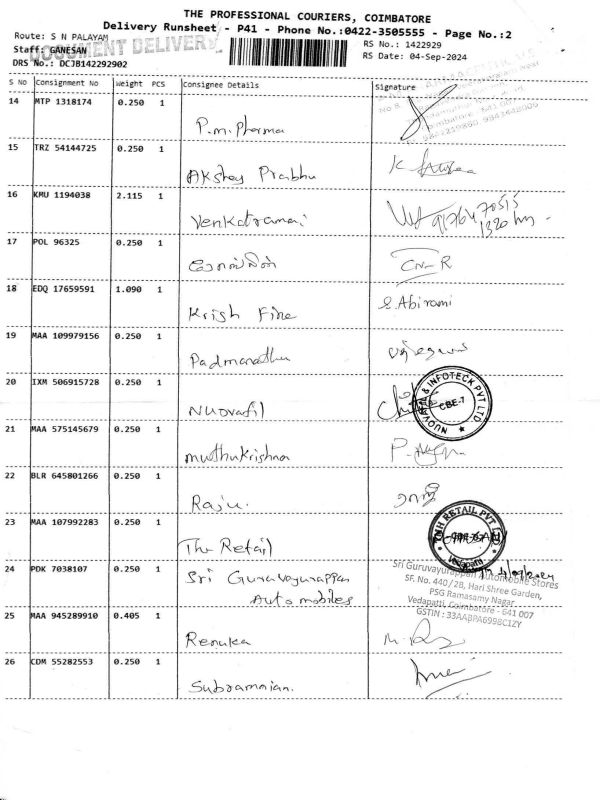 THE PROFESSIONAL COURIERS, COIMBATORE
Delivery Runsheet - P41 - Phone No.:0422-3505555 - Page No.:2
Route: S N PALAYAM
RS No.: 1422929
DOCUMENT DELIVERY
Staff: GANESAN
RS Date: 04-Sep-2024
DRS No.: DCJB142292902
S No Consignment No Weight PCS Consignee Details Signature
14 MTP 1318174 0.250 1
P.M. Pharma
15 TRZ 54144725 0.250 1
Akshay Prabhu
K
16 KMU 1194038 2.115 1
Venkatramai
1320 hrs
17 POL 96325 0.250 1
18 EDQ 17659591 1.090 1
Krish Fine
S. Abirami
19 MAA 109979156 0.250 1
Padmanathu
20 IXM 506915728 0.250 1
Nuovafil
NUOVAFIL & INFOTECK PVT LTD
CBE-7
21 MAA 575145679 0.250 1
muthukrishna
22 BLR 645801266 0.250 1
Raju.
ராஜு
23 MAA 107992283 0.250 1
The Retail
RETAIL PVT LTD
Vedapatti
24 PDK 7038107 0.250 1
Sri Guruvayurappan
Automobiles
Sri Guruvayurappan Automobile Stores
SF. No. 440/2B, Hari Shree Garden,
PSG Ramasamy Nagar
Vedapatti, Coimbatore - 641 007
GSTIN : 33AABPA6998C1ZY
25 MAA 945289910 0.405 1
Renuka
26 CDM 55282553 0.250 1
Subramnian.